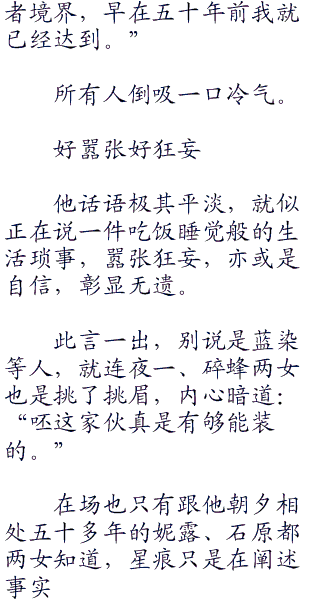 者境界，早在五十年前我就
已经达到。”
所有人倒吸一口冷气。
好嚣张好狂妄
他话语极其平淡，就似
正在说一件吃饭睡觉般的生
活琐事，嚣张狂妄，亦或是
自信，彰显无遗。
此言一出，别说是蓝染
等人，就连夜一、碎蜂两女
也是挑了挑眉，内心暗道：
“呸这家伙真是有够能装
的。”
在场也只有跟他朝夕相
处五十多年的妮露、石原都
两女知道，星痕只是在阐述
事实